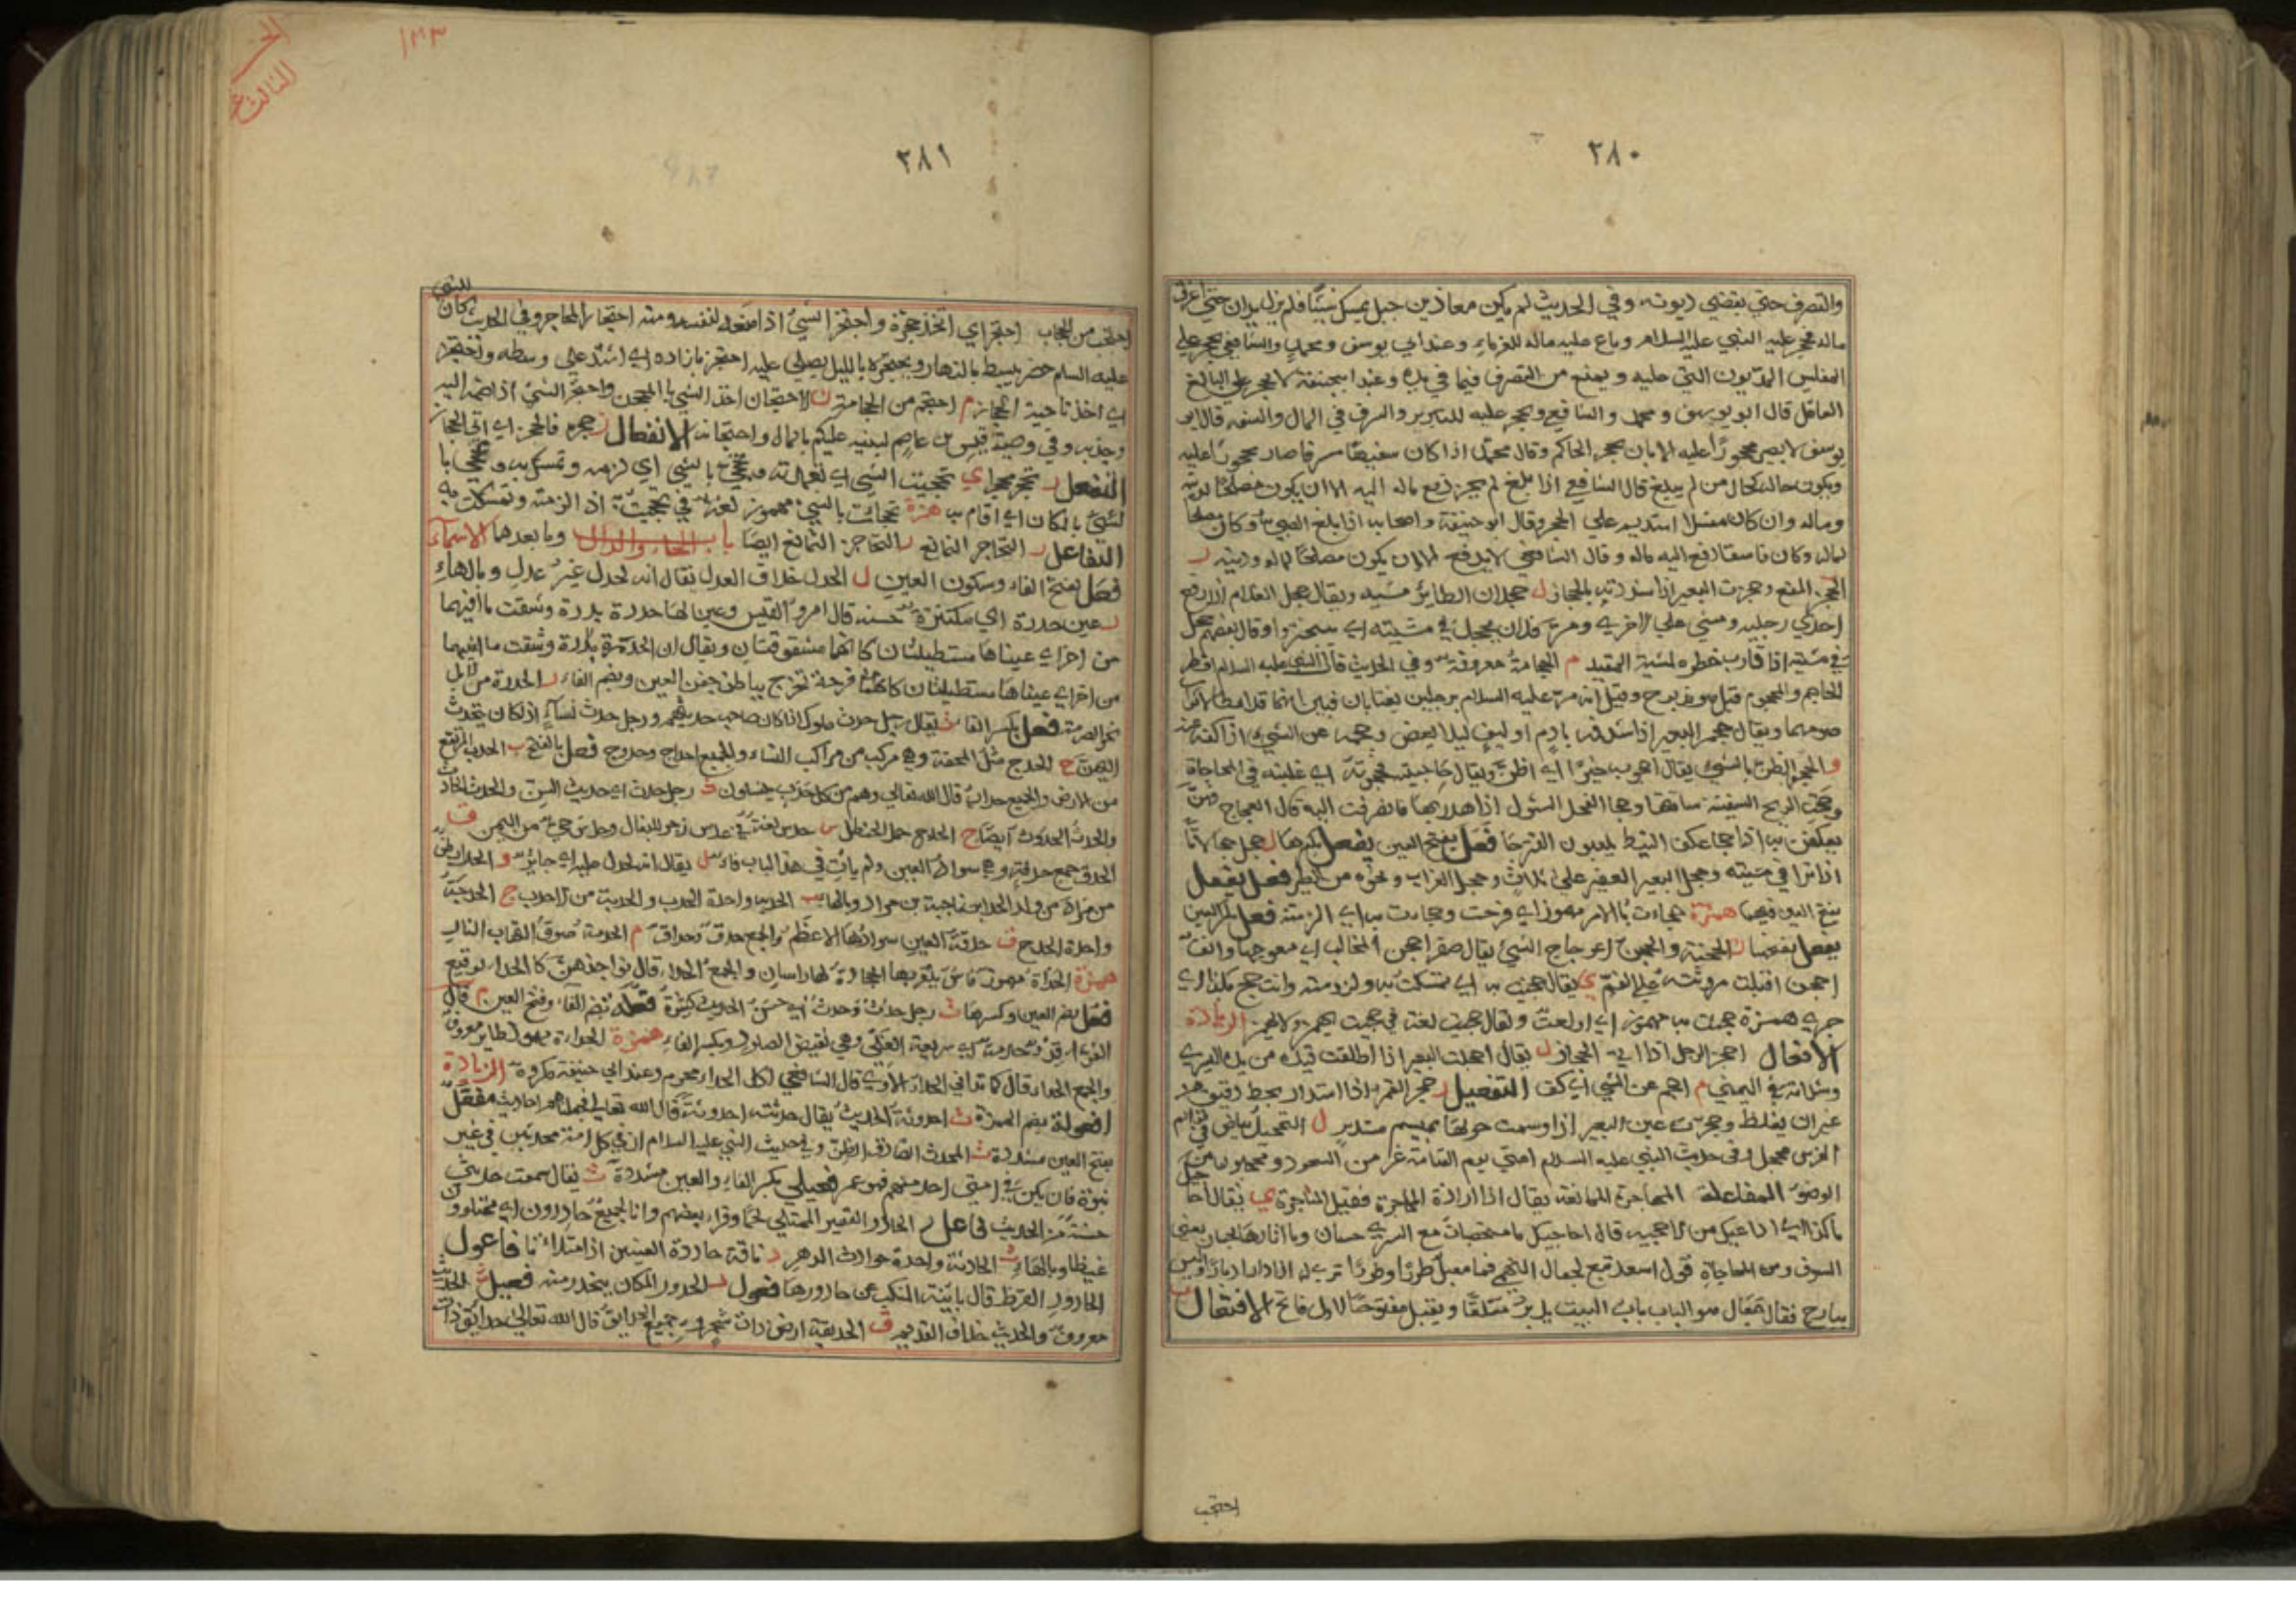 ٢٨٠
والتصرف حتى يقضي ديونه وفي الحديث لم يكن معاذ بن جبل يمسك شيئا فلم يزل يدان حتى اغرق
ماله فحجر عليه النبي عليه السلام وباع عليه ماله للغرماء وعند ابي يوسف ومحمد والشافعي يحجر على
المفلس المديون التي عليه ويمنع من التصرف فيما في يده وعند ابي حنيفة لا يحجر على البالغ
العاقل قال ابو يوسف ومحمد والشافعي ويحجر عليه للتبذير والسرف في المال والسفه قال ابو
يوسف لا يصير محجورا عليه الا بان يحجر الحاكم وقال محمد اذا كان سفيها مسرفا صار محجورا عليه
ويكون حاله كحال من لم يبلغ قال الشافعي اذا بلغ لم يجز دفع ماله اليه الا ان يكون مصلحا لدينه
وماله وان كان مفسدا استديم علي الحجر وقال ابو حنيفة واصحابه اذا بلغ الصبي وكان مصلحا
لماله وكان فاسقا دفع اليه ماله وقال الشافعي لا يدفع الا ان يكون مصلحا لماله ودينه ر
الحجز المنع وحجزت البعير اذا شددته بالحجاز ل حجلان الطاير مشيه ويقال حجل الغلام اذا رفع
احدي رجليه ومشى علي الاخري ومر فلان يحجل في مشيته اي يتبختر وقال بعضهم حجل
في مشيته اذا قارب خطوه لمشية المقيد م الحجامة معروفة وفي الحديث قال النبي عليه السلام افطر
الحاجم والمحجوم قيل هو منسوخ وقيل انه مر عليه السلام برجلين يغتابان فبين انهما قد افطرا
صومهما ويقال حجم البعير اذا شد فمه بادم او ليف ليلا يعض وحجمه عن الشيء اذا كفه عنه
و الحجو الظن بالشيء يقال احجو به خيرا اي اظن ويقال حاجيته فحجوته اي غلبته في المحاجاة
وحجت الريح السفينة ساقتها وحجا الفحل الشول اذا هدر بها فانصرفت اليه قال العجاج وهن
يعكفن به اذا حجا عكف النبيط يلعبون الفنزجا فعل بفتح العين يفعل بكسرها ل حجل حجلانا
اذا نزا في مشيته وحجل البعير العقير علي ثلاث وحجل الغراب ونحوه من الطير فعل يفعل
بفتح العين فيهما همزة حجأت بالامر مهموز اي فرحت وحجأت به اي الزمته فعل بكسر العين
يفعل بفتحها ن الحجنة والحجن اعوجاج الشيء يقال صقر احجن المخالب اي معوجها وانف
احجن اقبلت روثته علي الفم ي يقال حجيت به اي تمسكت به ولزمته وانت حج بكذا اي
حري همزة حجئت به مهموز اي اولعت ويقال حجيت لغة في حجيت يهمز ولا يهمز الزيادة
الافعال احجز الرجل اذا اتى الحجاز ل يقال احجلت البعير اذا اطلقت قيده من يده اليسري
وشددته في اليمنى م احجم عن الشيء اي كف التفعيل ر حجر القمر اذا استدار بخط رقيق من
غير ان يغلظ وحجرت عين البعير اذا وسمت حولها بميسم مستدير ل التحجيل بياض في قوايم
الفرس محجل وفي حديث النبي عليه السلام امتي يوم القيامة غر من السجود ومحجلون من
الوضوء المفاعلة المحاجزة الممانعة يقال اذا اردت المحاجزة فقبل المناجزة ي يقال حا
ما كذا اي اداعيك من الاحجية قال احاجيكم ما مخصبات مع السري حسان وما اثارها بحسان يعني
السوف ومن المحاجاة قول اسعد تبع لجمال النجم فما مقبل طورا وطورا تري له اذا دار ادبار وليس
ببارح فقال جمال هو الباب باب البيت يدبر مغلقا ويقبل مفتوحا لاول فاتح الافتعال ب
احتجب
الجزء
الثالث
١٣٣
٢٨١
للنبي
احتجب من الحجاب احتجر اي اتخذ حجرة واحتجز الشيء اذا منعه لنفسه ومنه احتجار المحاجر وفي الحديث كان
عليه السلم حضر يبسط بالنهار ويحتجره بالليل يصلي عليه احتجز بازاره اي اشتد علي وسطه واحتجز
اي اخذ ناحية الحجاز م احتجم من الحجامة ن الاحتجان اخذ الشيء بالمحجن واحتجن الشيء اذا ضمه اليه
وجذبه وفي وصية قيس بن عاصم لبنيه عليكم بالمال واحتجانه الانفعال ز حجزه فانحجز اي اتى الحجاز
التفعل ر تحجر حجرا ي تحجيت الشيء اي تعمدته وتحجى بالشيء اي لزمه وتمسك به وتحجى با
لشيء بالمكان اي اقام به همزة تحجأت بالشيء مهموز لغة في تحجيت اذا لزمته وتمسكت به
التفاعل ز التحاجز التمانع ز التحاجز التمانع ايضا باب الحاء والدال وما بعدهما الاسماء
فعل بفتح الفاء وسكون العين ل الحدل خلاف العدل يقال انه لحدل غير عدل وبالهاء
ر عين حدرة اي مكتنزة حسنة قال امرؤ القيس وعين لها حدرة بدرة وشقت ماقيهما
من اخر اي عيناها مستطيلتان كانهما مشقوقتان ويقال ان الحدرة بدرة وشقت ماقيهما
من اخر اي عيناها مستطيلتان كانهما قرحة تخرج بباطن جفن العين وبضم الفاء ر الحدرة من الابل
نحو الصرمة فعل بكسر الفا ث يقال رجل حدث ملوك اذا كان صاحب حديثهم ورجل حدث نساء اذا كان يتحدث
اليهن ج الحدج مثل المحفة وهو مركب من مراكب النساء والجميع احداج وحدوج فعل بالفتح ب الحدب المرتفع
من الارض والجمع حداب قال الله تعالي وهم من كل حدب ينسلون ث رجل حدث اي حديث السن والحدث الحادث
والحدث الحدوث ايضا ج الحدج حمل الحنظل س حدس لغة في عدس زجر للبغال وحدس حي من اليمن ق
الحدق جمع حدقة وهي سواد العين ولم يات في هذا الباب فاء ل يقال انه لحدل عليه اي جاير و الحداء بطن
من مراد من ولد الحدا بن ناجية بن مراد وبالهاء ب الحدبة واحدة الحدب والحدبة من الاحدب ج الحدجة
واحدة الحدج ق حدقة العين سوادها الاعظم والجمع حدق وحداق م الحدمة صوت التهاب النار
همزة الحداة مهموز فاس ينقر بها الحجارة لها راسان والجمع الحداء قال نواجذهن كالحداء الوقيع
فعل بضم العين وكسرها ث رجل حدث وحدث اي حسن الحديث كثيره فعلة بضم الفاء وفتح العين م قال
الفراء قدر حدمة اي سريعة الغلي وهي نقيض الصلود وبكسر الفاء همزة الحداة مهموز طاير معروف
والجمع الحداء قال كما تداني الحداء الاوي قال الشافعي اكل الحداء محرم وعند ابي حنيفة مكروه الزيادة
افعولة بضم الهمزة ث احدوثة الحديث يقال حدثته احدوثة قال الله تعالى فجعلناهم احاديث مفعل
بفتح العين مشددة ث المحدث الصادق الظن وفي حديث النبي عليه السلام ان في كل امة محدثين في غير
نبوة فان يكن في امتي احد منهم فهو عمر فعيلى بكسر الفاء والعين مشددة ث يقال سمعت حديثى
حسنة من الحديث فاعل ر الحادر القصير الممتلي لحما وقرا بعضهم وانا لجميع حادرون اي ممتلون
غيظا وبالهاء ث الحادثة واحدة حوادث الدهر ر ناقة حادرة العينين اذا امتلاتا فاعول
الحادور القرط قال باينة المنكب من حادورها فعول ر الحدور المكان ينحدر منه فعيل ث الحديث
معروف والحديث خلاف القديم ق الحديقة ارض ذات شجر وجميع الحدايق قال الله تعالي حدايق ذات